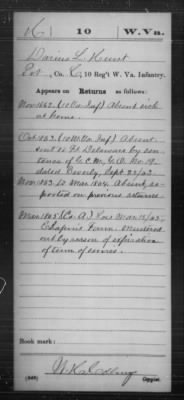 K | 10 | W. Va.
Darius L. Hunt
Pvt, Co. K, 10 Reg't W. Va. Infantry.
Appears on Returns as follows:
Nov. 1862 (10 Va. Inf) Absent sick
at home.
Oct. 1863 (10 W.Va. Inf) Absent
sent to Ft Delaware by sen-
tence of G.C.M., G.O. No. 19
dated Beverly, Sept. 22/63.
Nov. 1863 to Mar 1864, Absent, re-
ported on previous returns.
Mar. 1865 (Co. A) Loss Mar 12/65,
Chapins Farm. Mustered
out by reason of expiration
of term of service.
Book mark:
(546)
Copyist.